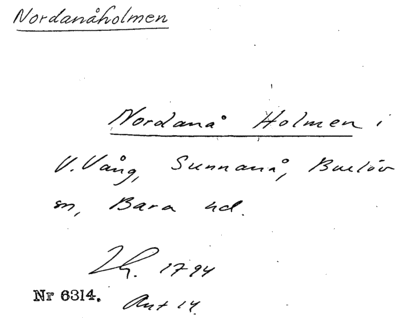 Nordanåholmen
Nordanå Holmen i
V. Vång, Sunnanå, Burlöv
sn, Bara hd.
Lh. 1794
Nr 6314. Akt 14.